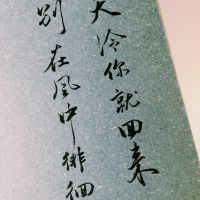 天冷你就回来
别在风中徘徊